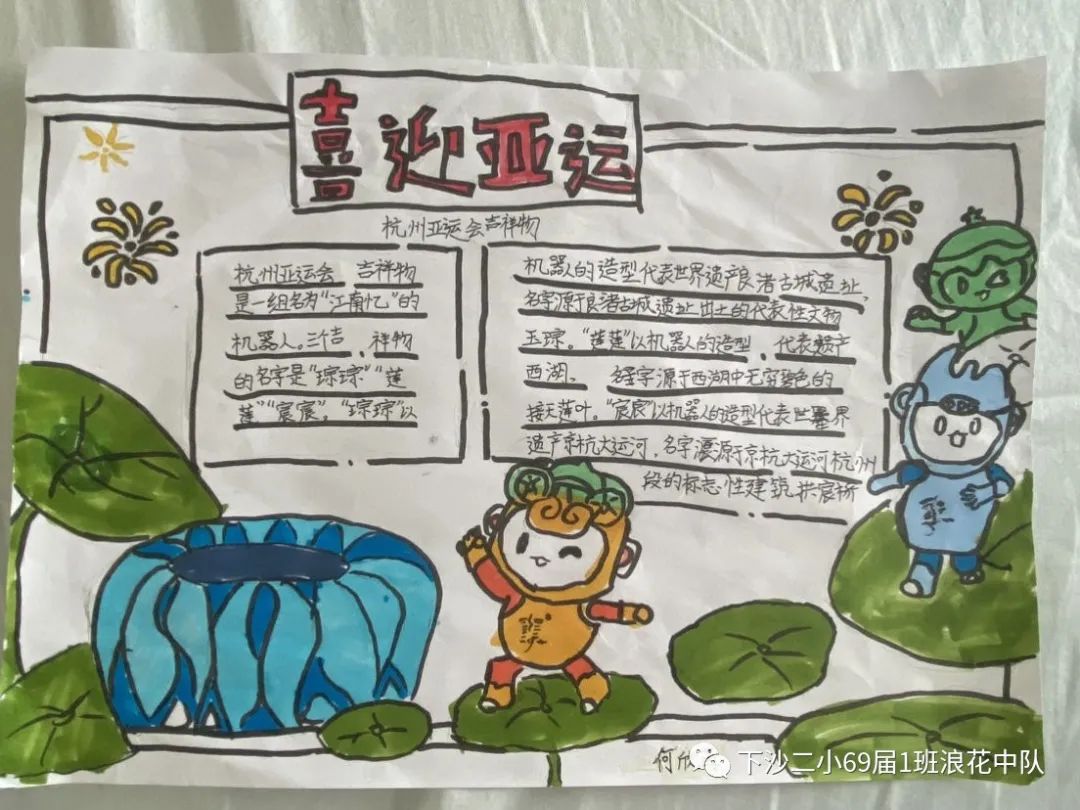 喜迎亚运
杭州亚运会吉祥物
杭州亚运会 吉祥物
是一组名为“江南忆”的
机器人。三个吉 祥物
的名字是“琮琮”“莲
莲”“宸宸”。“琮琮”以
机器人的造型代表世界遗产良渚古城遗址，
名字源于良渚古城遗址出土的代表性文物
玉琮。“莲莲”以机器人的造型，代表遗产
西湖。 名字源于西湖中无穷碧色的
接天莲叶。“宸宸”以机器人的造型代表世界
遗产京杭大运河，名字源于京杭大运河杭州
段的标志性建筑拱宸桥
何欣
下沙二小69届1班浪花中队